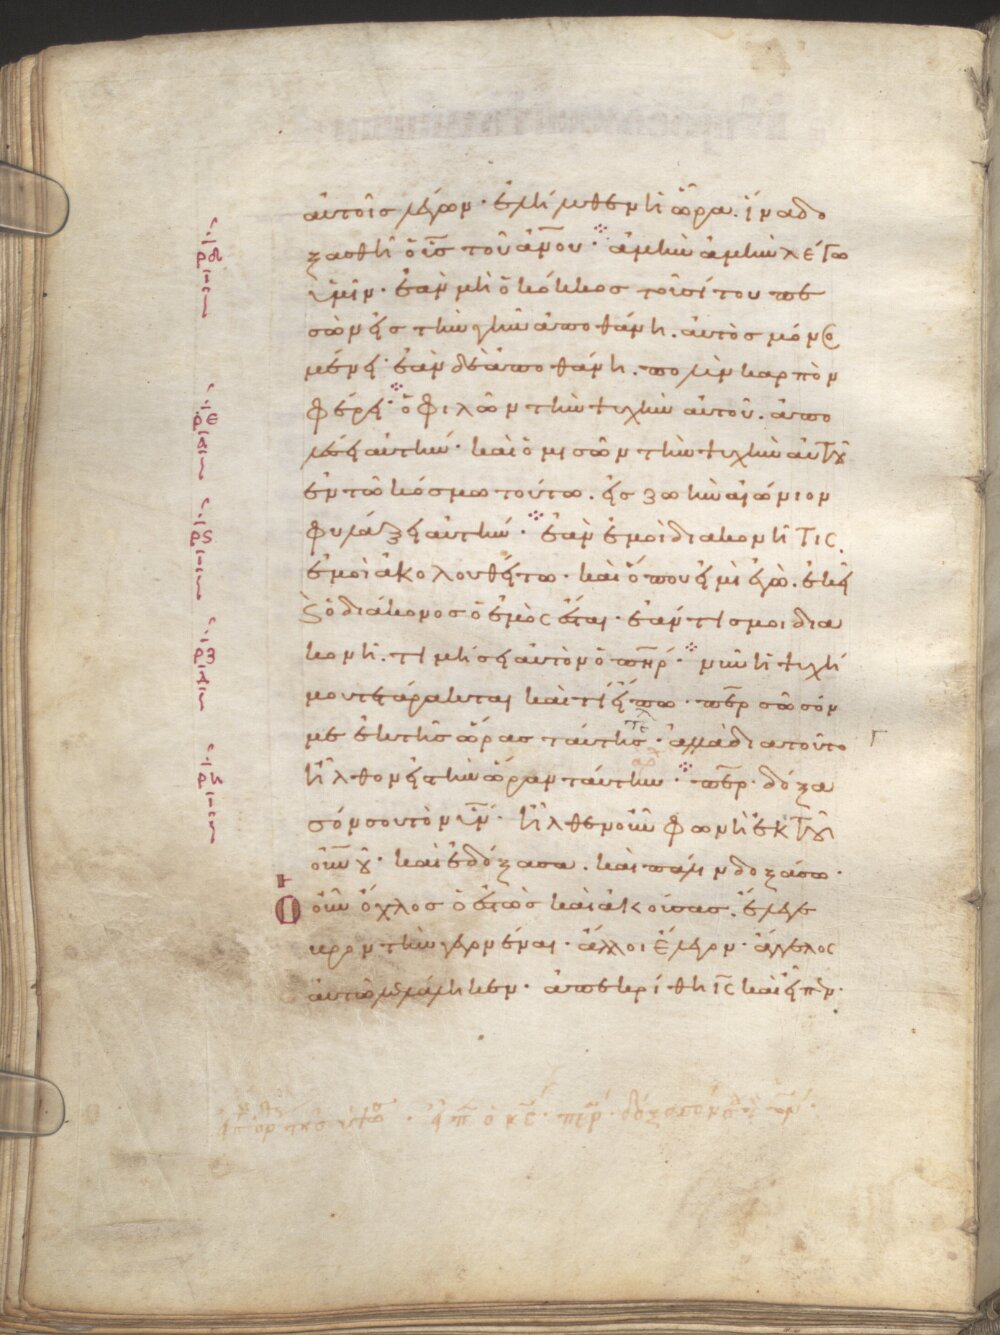 αὐτοῖς λέγων· ἐλήλυθεν ἡ ὥρα. ἵνα δο
ρδ
ξασθῆ ὁ υἱς τοῦ ἀνου· ἀμὴν ἀμὴν λέγω
ὑμῖν· ἐὰν μὴ ὁ κόκκος τοῦ σίτου πε
σὼν εἰς τὴν γῆν ἀποθάνη. αὐτὸς μόνος
μένει· ἐὰν δὲ ἀποθάνη. πολὺν καρπὸν
ρε
φέρει· ὁ φιλῶν τὴν ψυχὴν αὐτοῦ. ἀπο
λέσει αὐτήν· καὶ ὁ μισῶν τὴν ψυχὴν αὐτοῦ
ἐν τῶ κόσμω τούτω. εἰς ζωὴν αἰώνιον
ρς
φυλάξει αὐτήν· ἐὰν ἐμοὶ διακονῆ τις.
ἐμοὶ ἀκολουθείτω· καὶ ὅπου εἰμὶ ἐγώ. ἐκεῖ
ὁ διάκονος ὁ ἐμὸς ἔσται· ἐάν τις ἐμοὶ δια
ρζ
κονῆ. τιμήσει αὐτὸν ὁ πηρ· νῦν ἡ ψυχή
μου τετάρακται καὶ τί εἴπω· περ σῶσόν
με ἐκ τῆς ὥρας ταύτης· ἀλλὰ διὰ τοῦτο
ρη
ἦλθον εἰς τὴν ὥραν ταύτην· περ· δόξα
σόν σου τὸν υἱν· ἦλθεν οὖν φωνὴ ἐκ τοῦ
οὐνου· καὶ ἐδόξασα. καὶ πάλιν δοξάσω·
Ο οὖν ὄχλος ὁ ἑστὼς καὶ ἀκούσας. ἔλεγε
βροντὴν γεγονέναι· ἄλλοι ἔλεγον· ἄγγελος
αὐτῶ λελάληκεν· ἀπεκρίθη ις καὶ εἶπεν·